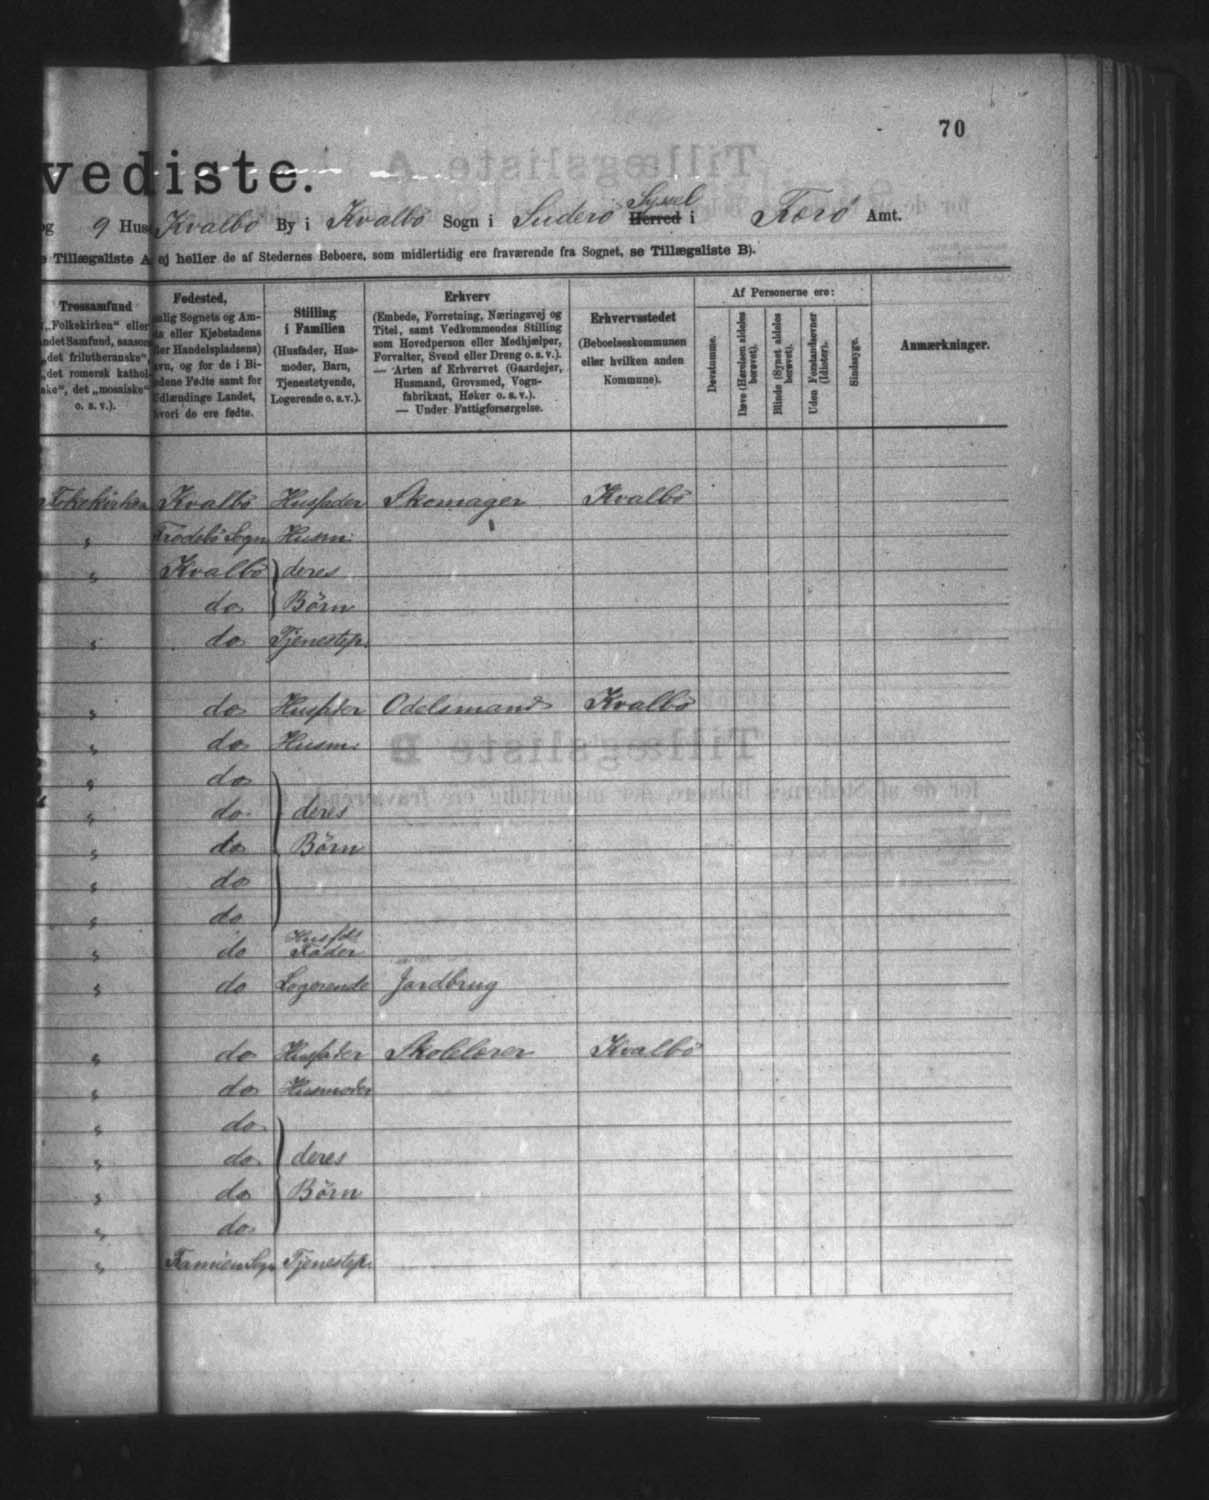 70
vediste.
og 9 Hus Kvalbø By i Kvalbø Sogn i Suderø Syssel Herred i Færø Amt.
Tillægsliste A ej heller de af Stedernes Beboere, som midlertidig ere fraværende fra Sognet, se Tillægsliste B).
Trossamfund
„Folkekirken“ eller
andet Samfund, saasom
„det frilutheranske“,
„det romersk kathol
ske“, det „mosaiske“
o. s. v.).
Fødested,
nlig Sognets og Am-
ts eller Kjøbstadens
ler Handelspladsens)
avn, og for de i Bi-
dene Fødte samt for
Udlændinge Landet,
hvori de ere fødte.
Stilling
i Familien
(Husfader, Hus-
moder, Barn,
Tjenestetyende,
Logerende o. s. v.).
Erhverv
(Embede, Forretning, Næringsvej og
Titel, samt Vedkommendes Stilling
som Hovedperson eller Medhjælper,
Forvalter, Svend eller Dreng o. s. v.).
— Arten af Erhvervet (Gaardejer,
Husmand, Grovsmed, Vogn-
fabrikant, Høker o. s. v.).
— Under Fattigforsørgelse.
Erhvervsstedet
(Beboelseskommunen
eller hvilken anden
Kommune).
Af Personerne ere:
Døvstumme.
Døve (Hørelsen aldeles
berøvet).
Blinde (Synet aldeles
berøvet).
Uden Forstandsevner
(Idioter).
Sindssyge.
Anmærkninger.
Folkekirken Kvalbø Husfader Skomager Kvalbø
„ Frodebø Sogn Husm.
„ Kvalbø deres
do Børn
„ do Tjenestep.
„ do Husfader Odelsmand Kvalbø
„ do Husm.
„ do
„ do deres
„ do Børn
„ do
„ do
„ do Husfds Fader
„ do Logerende Jordbrug
„ do Husfader Skolelærer Kvalbø
„ do Husmoder
„ do
„ do deres
„ do Børn
„ do
„ Famien Sogn Tjenestep.